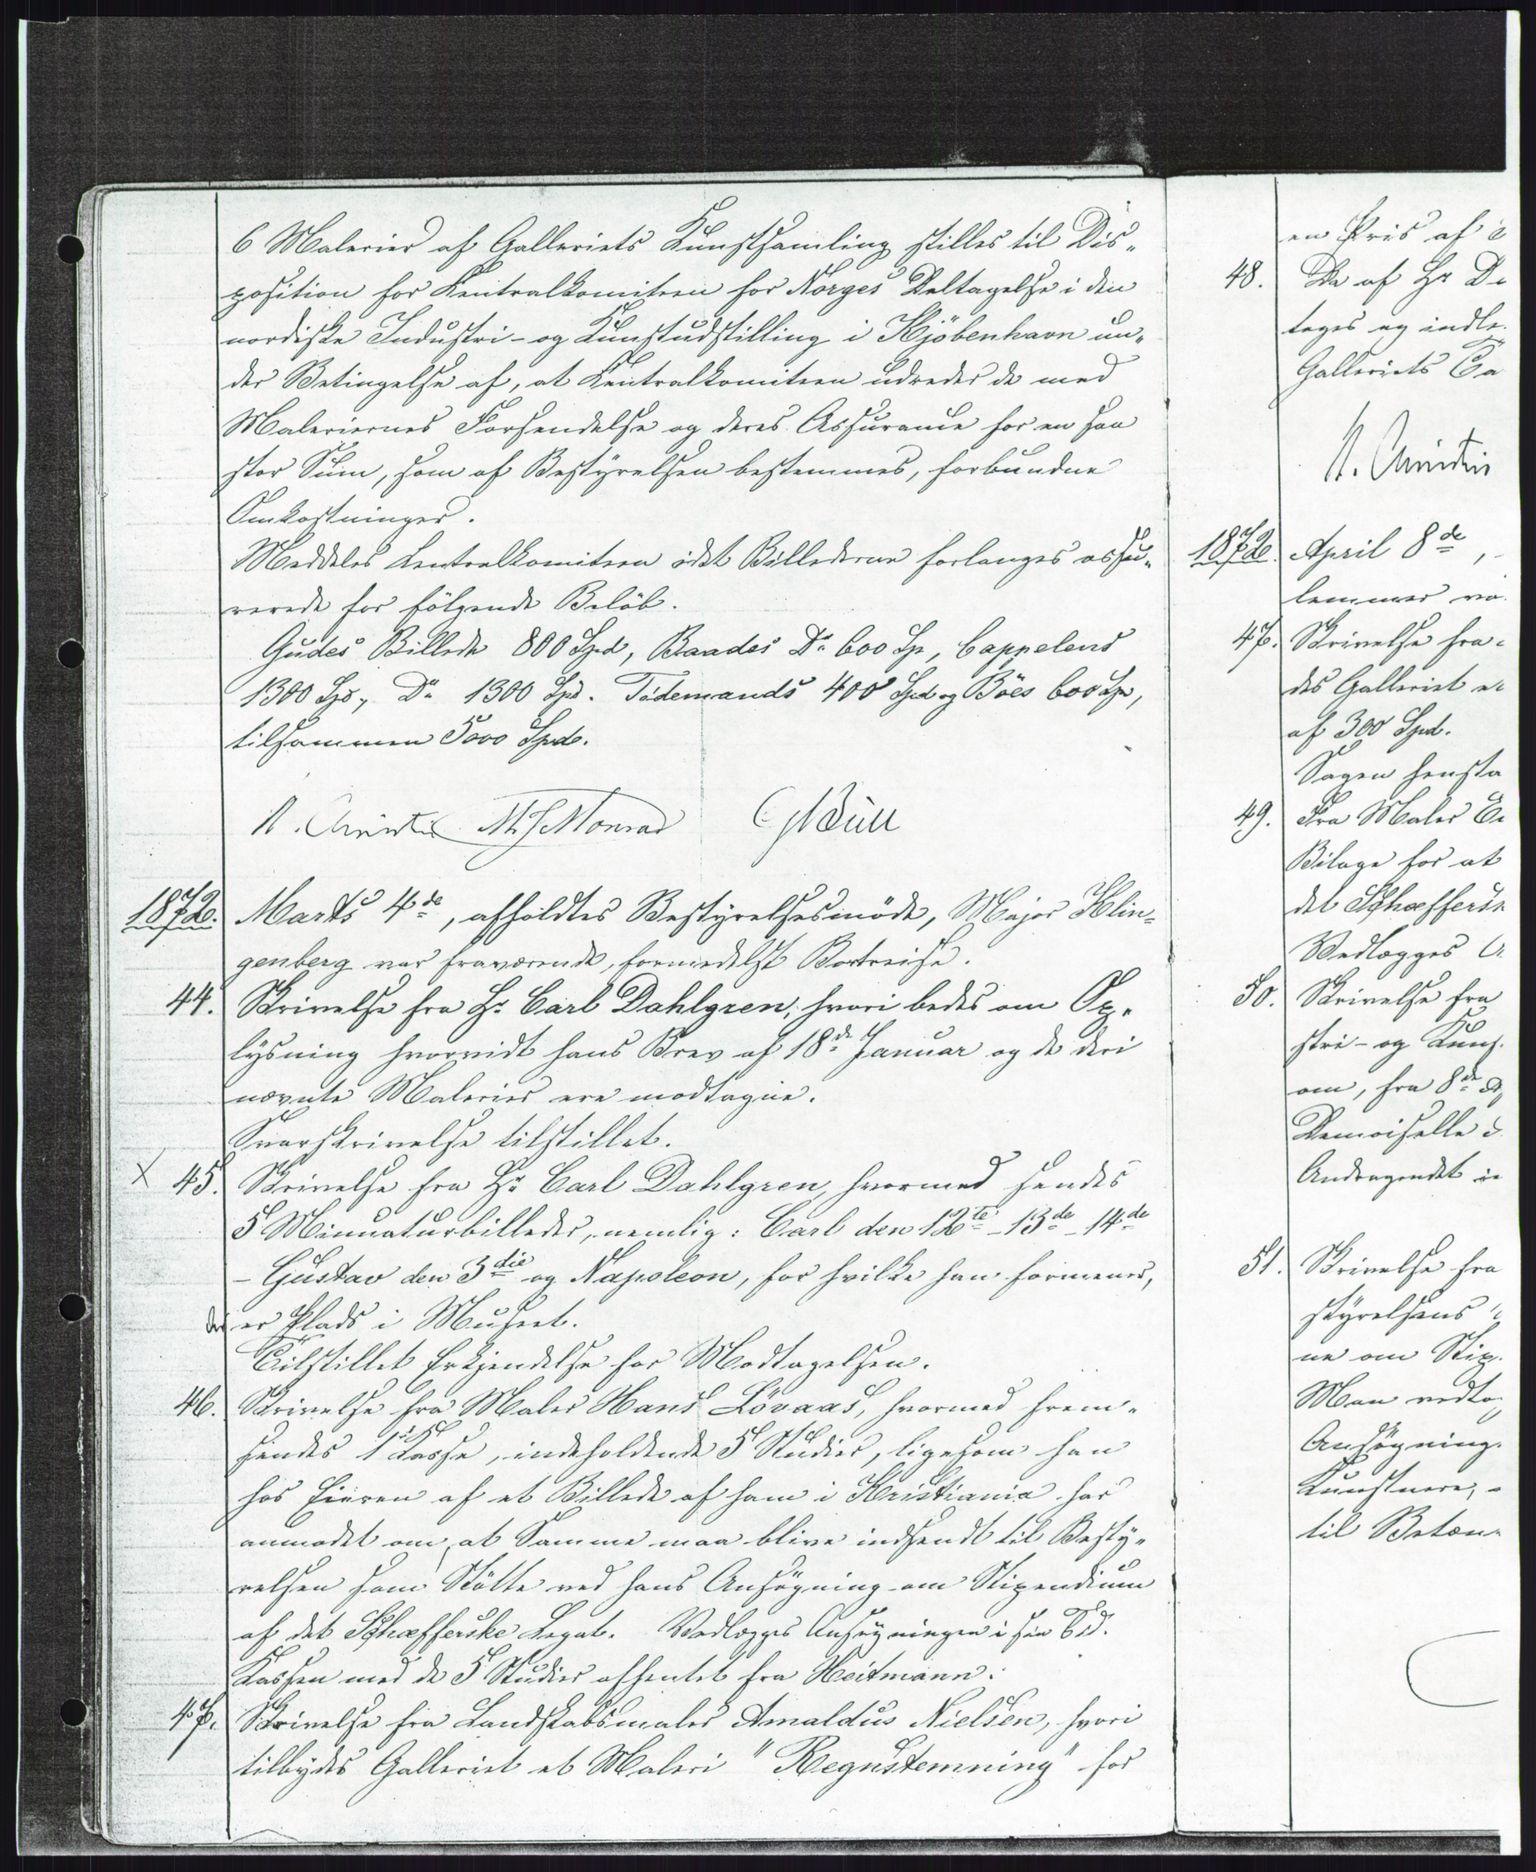 6 Malerier af Galleriets Kunstsamling stilles til Dis-
position for Centralkomiteen for Norges Deltagelse i den
nordiske Industri- og Kunstudstilling i Kjöbenhavn un-
der Betingelse af, at Centralkomiteen udreder de med
Maleriernes Forsendelse og deres Assurance for en saa
stor Sum, som af Bestyrelsen bestemmes, forbundne
Omkostninger.
Meddeles Centralkomiteen idet Billederne forlanges assu-
rerede for fölgende Belöb.
Gudes Billede 800 Spd, Baades Do 600 Sp, Cappelens
1300 Spd, Do 1300 Spd. Tidemands 400 Spd og Böes 600 Sp,
tilsammen 5000 Spd.
M. J. Monrad G Bull
1872. Marts 4de, afholdtes Bestyrelsesmöde, Major Klin-
genberg var fraværende, formedelst Bortreise.
44. Skrivelse fra Hr Carl Dahlgren, hvori bedes om Op-
lysning hvorvidt hans Brev af 18de Januar og de deri
nævnte Malerier ere modtagne.
Svarskrivelse tilstillet.
X 45. Skrivelse fra Hr Carl Dahlgren, hvormed sendes
5 Minuaturbilleder, nemlig: Carl den 12te - 13de - 14de
- Gustav den 3die og Napoleon, for hvilke han formener,
der er Plads i Museet.
Tilstillet Erkjendelse for Modtagelsen.
46. Skrivelse fra Maler Hans Lövaas, hvormed frem-
sendes 1 Kasse, indeholdende 5 Studier, ligesom han
hos Eieren af et Billede af ham i Kristiania har
anmodet om, at Samme maa blive indsendt til Besty-
relsen som Stötte ved hans Ansögning om Stipendium
af det Schæfferske Legat. Vedlægges Ansögningen i sin Tid.
Kassen med de 5 Studier afhentet fra Heitmann.
47. Skrivelse fra Landskabsmaler Amaldus Nielsen, hvori
tilbydes Galleriet et Maleri "Regnstemning" for
en Pris af
48. Da af Hr
tages og indle
Galleriets
1872. April 8de,
lemmer
47. Skrivelse fra
des Galleriet
af 300 Spd.
Sagen hensta
49. Fra Maler
Bilage for at
det Schæffersk
Vedlægges
50. Skrivelse fra
stri- og Kuns
om, fra 8de
Demoiselle
Andragendet
51. Skrivelse fra
styrelsens
ne om Stip
Man vedto
Ansögning
Kunstnere,
til Betæn